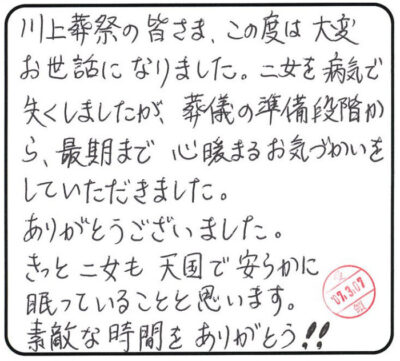 川上葬祭の皆さま、この度は大変
お世話になりました。二女を病気で
失くしましたが、葬儀の準備段階か
ら、最期まで 心暖まるお気づかいを
していただきました。
ありがとうございました。
きっと二女も天国で安らかに
眠っていることと思います。
素敵な時間をありがとう!!
07.3.07